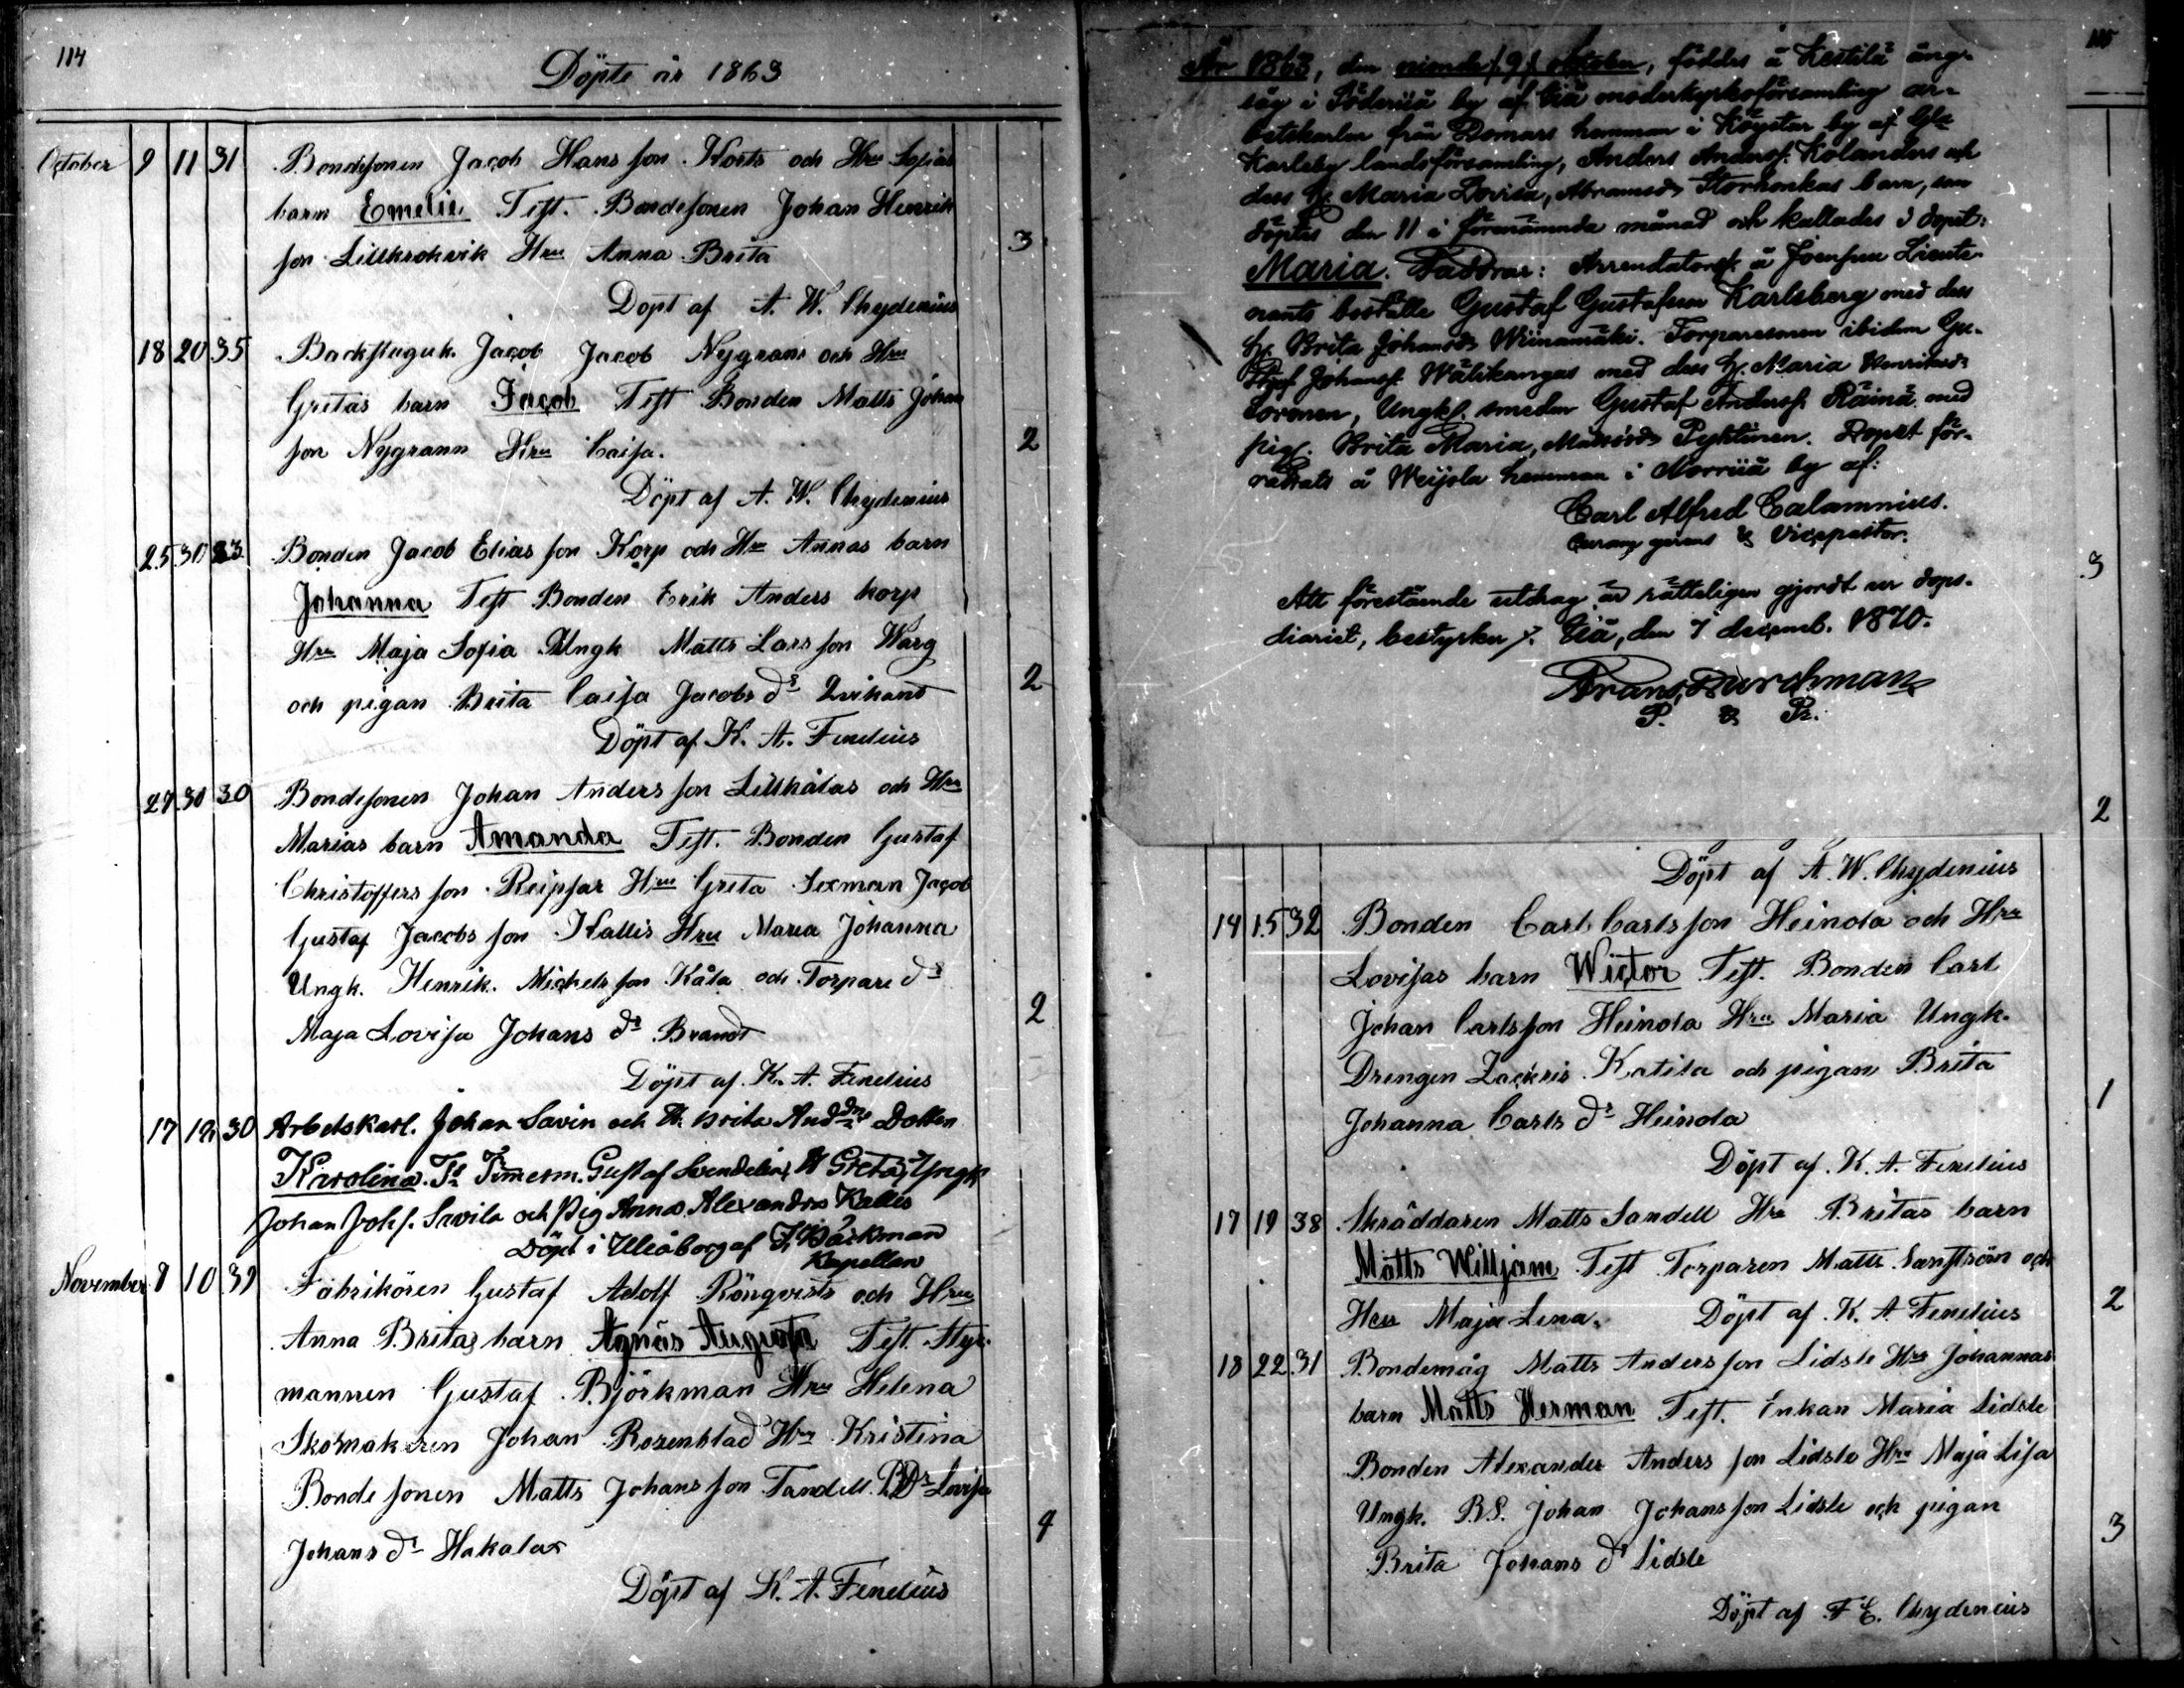 114
Döpte år 1863
October 9 11 31 Bondesonen Jacob Hans son Korts och Hru Sofias
barn Emelie Test. Bondesonen Johan Henrik
son Lillkrokvik Hru Anna Brita
3
Döpt af A. W. Chydenius
18 20 35 Backstuguk. Jacob Jacob Nygrans och Hru
Gretas barn Jacob Test Bonden Matts Johan
son Nygrann Hru Caisa.
2
Döpt af A. W. Chydenius
25 30 23 Bonden Jacob Elias son Korp och Hru Annas barn
Johanna Test Bonden Erik Anders Korp
Hru Maja Sofia Ungk Matts Lars son Warg
och pigan Brita Caisa Jacobs dr
2
Döpt af K. A. Fenelius
27 30 30 Bondesonen Johan Anders son Lillkålas och Hru
Marias barn Amanda Test. Bonden Gustaf
Christoffers son Reipsar Hru Greta Sexman Jacob
Gustaf Jacobs son Kallis Hru Maria Johanna
Ungk. Henrik Michels son Kåla och Torpare dr
2
Maja Lovisa Johans dr Brandt
Döpt af K. A. Fenelius
17 19 30 Arbetskarl. Johan Savin och H. Brita Anddr Dotter
Karolina. Ts Timerm. Gustaf Svendelin, H Greta, Yngk
Johan Johs. Savila och Pig Anna Alexandra Kallis
Döpt i Uleåborg af J. Bäckman
Kapellan
November 8 10 39 Fabrikören Gustaf Adolf Rönqvists och Hru
Anna Britas barn Agnäs Augusta Test. Styr-
mannen Gustaf Björkman Hru Helena
Skomakeren Johan Rosenblad Hru Kristina
Bonde sonen Matts Johans son Tandell BDr Lovisa
4
Johans dr Hakalax
Döpt af K. A. Fenelius
115
År 1863, den niende /9/ oktober, föddes å Kestilä äng-
såg i Söderijå by af Ijå moderkyrkoförsamling ar-
betskarlen från Domars hemman i Köystar by af Gla
Karleby landsförsamling, Anders Anderss. Kolanders och
dess h. Maria Lovisa, Abramsdr Storkonkas barn, som
döptes den 11 i förenämnda månad och kallades i dopet:
Maria. Faddrar: Arrendators. å Joensuu Lieute-
nants boställe Gustaf Gustafsson Karlsberg med dess
h. Brita Johansdr Wiinamäki. Torparesonen ibidem Gu-
staf Johanss. Wälikangas med dess h. Maria Henriksdr
Soronen, Ungkl. smeden Gustaf Anderss. Räinä med
pig. Brita Maria, Mattsdr Pyhtinen. Dopet för-
rättats å Weijola hemman i Norrijå by af:
Carl Alfred Calamnius.
Curam gerens & Vicepastor.
3
Att förestående utdrag är rätteligen gjordt ur dops-
diariet, bestyrker /. Ijå, den 7 decemb. 1870.
Frans Durchman
P. & Pr.
2
Döpt af A. W. Chydenius
14 15 32 Bonden Carl Carls son Heinola och Hru
Lovisas barn Wictor Test. Bonden Carl
Johan Carlsson Heinola Hru Maria Ungk.
Drengen Zackris Katila och pigan Brita
1
Johanna Carls dr Heinola
Döpt af K. A. Fenelius
17 19 38 Skräddaren Matts Sandell Hru Britas barn
Matts Willjam Test Torparen Matts och
2
Hru Maja Lena. Döpt af K. A. Fenelius
18 22 31 Bondemåg Matts Anders son Lidsle Hru Johannas
barn Matts Herman Test. Enkan Maria Lidsle
Bonden Alexander Anders son Lidsle Hru Maja Lisa
Ungk. B.S. Johan Johans son Lidsle och pigan
3
Brita Johans dr Lidsle
Döpt af F E. Chydenius